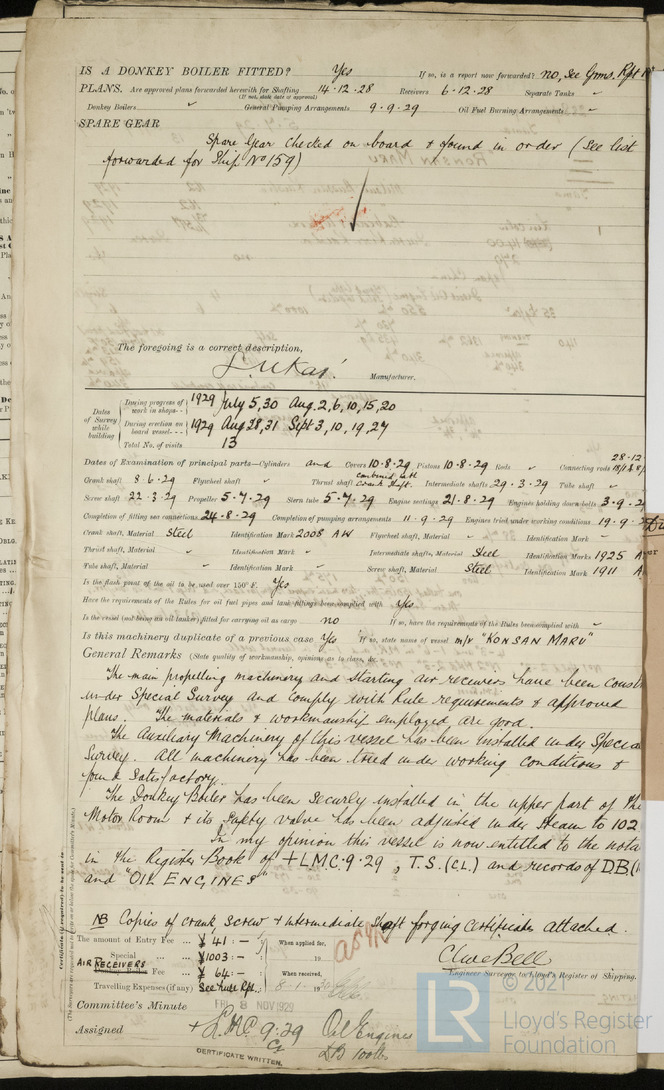 IS A DONKEY BOILER FITTED? Yes If so, is a report now forwarded? no, see Grms. Rpt
PLANS. Are approved plans forwarded herewith for Shafting 14.12.28 Receivers 6.12.28 Separate Tanks "
(If not, state date of approval)
Donkey Boilers " General Pumping Arrangements 9.9.29 Oil Fuel Burning Arrangements "
SPARE GEAR
Spare Gear checked on board & found in order (See list
forwarded for Ship No 159)
The foregoing is a correct description,
Manufacturer.
Dates of Survey while building
During progress of work in shops-- 1929 July 5,30 Aug. 2,6,10,15,20
During erection on board vessel--- 1929 Aug 28,31 Sept 3,10,19,27
Total No. of visits 13
Dates of Examination of principal parts—Cylinders and Covers 10.8.29 Pistons 10.8.29 Rods " Connecting rods 28.12
Crank shaft 8.6.29 Flywheel shaft " Thrust shaft combined with crank shaft. Intermediate shafts 29.3.29 Tube shaft "
Screw shaft 22.3.29 Propeller 5.7.29 Stern tube 5.7.29 Engine seatings 21.8.29 Engines holding down bolts 3.9.2
Completion of fitting sea connections 24.8.29 Completion of pumping arrangements 11.9.29 Engines tried under working conditions 19.9.2
Crank shaft, Material Steel Identification Mark 2008 AW Flywheel shaft, Material " Identification Mark "
Thrust shaft, Material " Identification Mark " Intermediate shafts, Material Steel Identification Marks 1925 A
Tube shaft, Material " Identification Mark " Screw shaft, Material Steel Identification Mark 1911 A
Is the flash point of the oil to be used over 150° F. Yes
Have the requirements of the Rules for oil fuel pipes and tank fittings been complied with Yes
Is the vessel (not being an oil tanker) fitted for carrying oil as cargo no If so, have the requirements of the Rules been complied with "
Is this machinery duplicate of a previous case Yes If so, state name of vessel m/v "KONSAN MARU"
General Remarks (State quality of workmanship, opinions as to class, &c.
The main propelling machinery and starting air receivers have been const
under Special Survey and comply with Rule requirements & approved
plans. The materials & workmanship employed are good.
The Auxiliary Machinery of this vessel has been installed under Specia
Survey. All machinery has been tried under working conditions &
found Satisfactory.
The Donkey Boiler has been Securely installed in the upper part of the
Motor Room & its Safety valve has been adjusted under steam to 102
In my opinion this vessel is now entitled to the nota
in the Register Book of +LMC.9.29, T.S.(C.L.) and records of DB(
and "OIL ENGINES"
NB Copies of crank, screw & intermediate shaft forging certificates attached.
The amount of Entry Fee ... ¥ 41:- When applied for,
Special ... ¥1003:- 19
AIR RECEIVERS Fee ... ¥ 64:- When received,
Travelling Expenses (if any) See hull Rpt. 8.1.19
Clive Bell
Engineer Surveyor to Lloyd's Register of Shipping.
Committee's Minute FRI 8 NOV 1929
Assigned + LMC 9.29 Oil Engines
DB 100lbs
CERTIFICATE WRITTEN.
Certificate (if required) to be sent to
© 2021
LR Lloyd's Register
Foundation